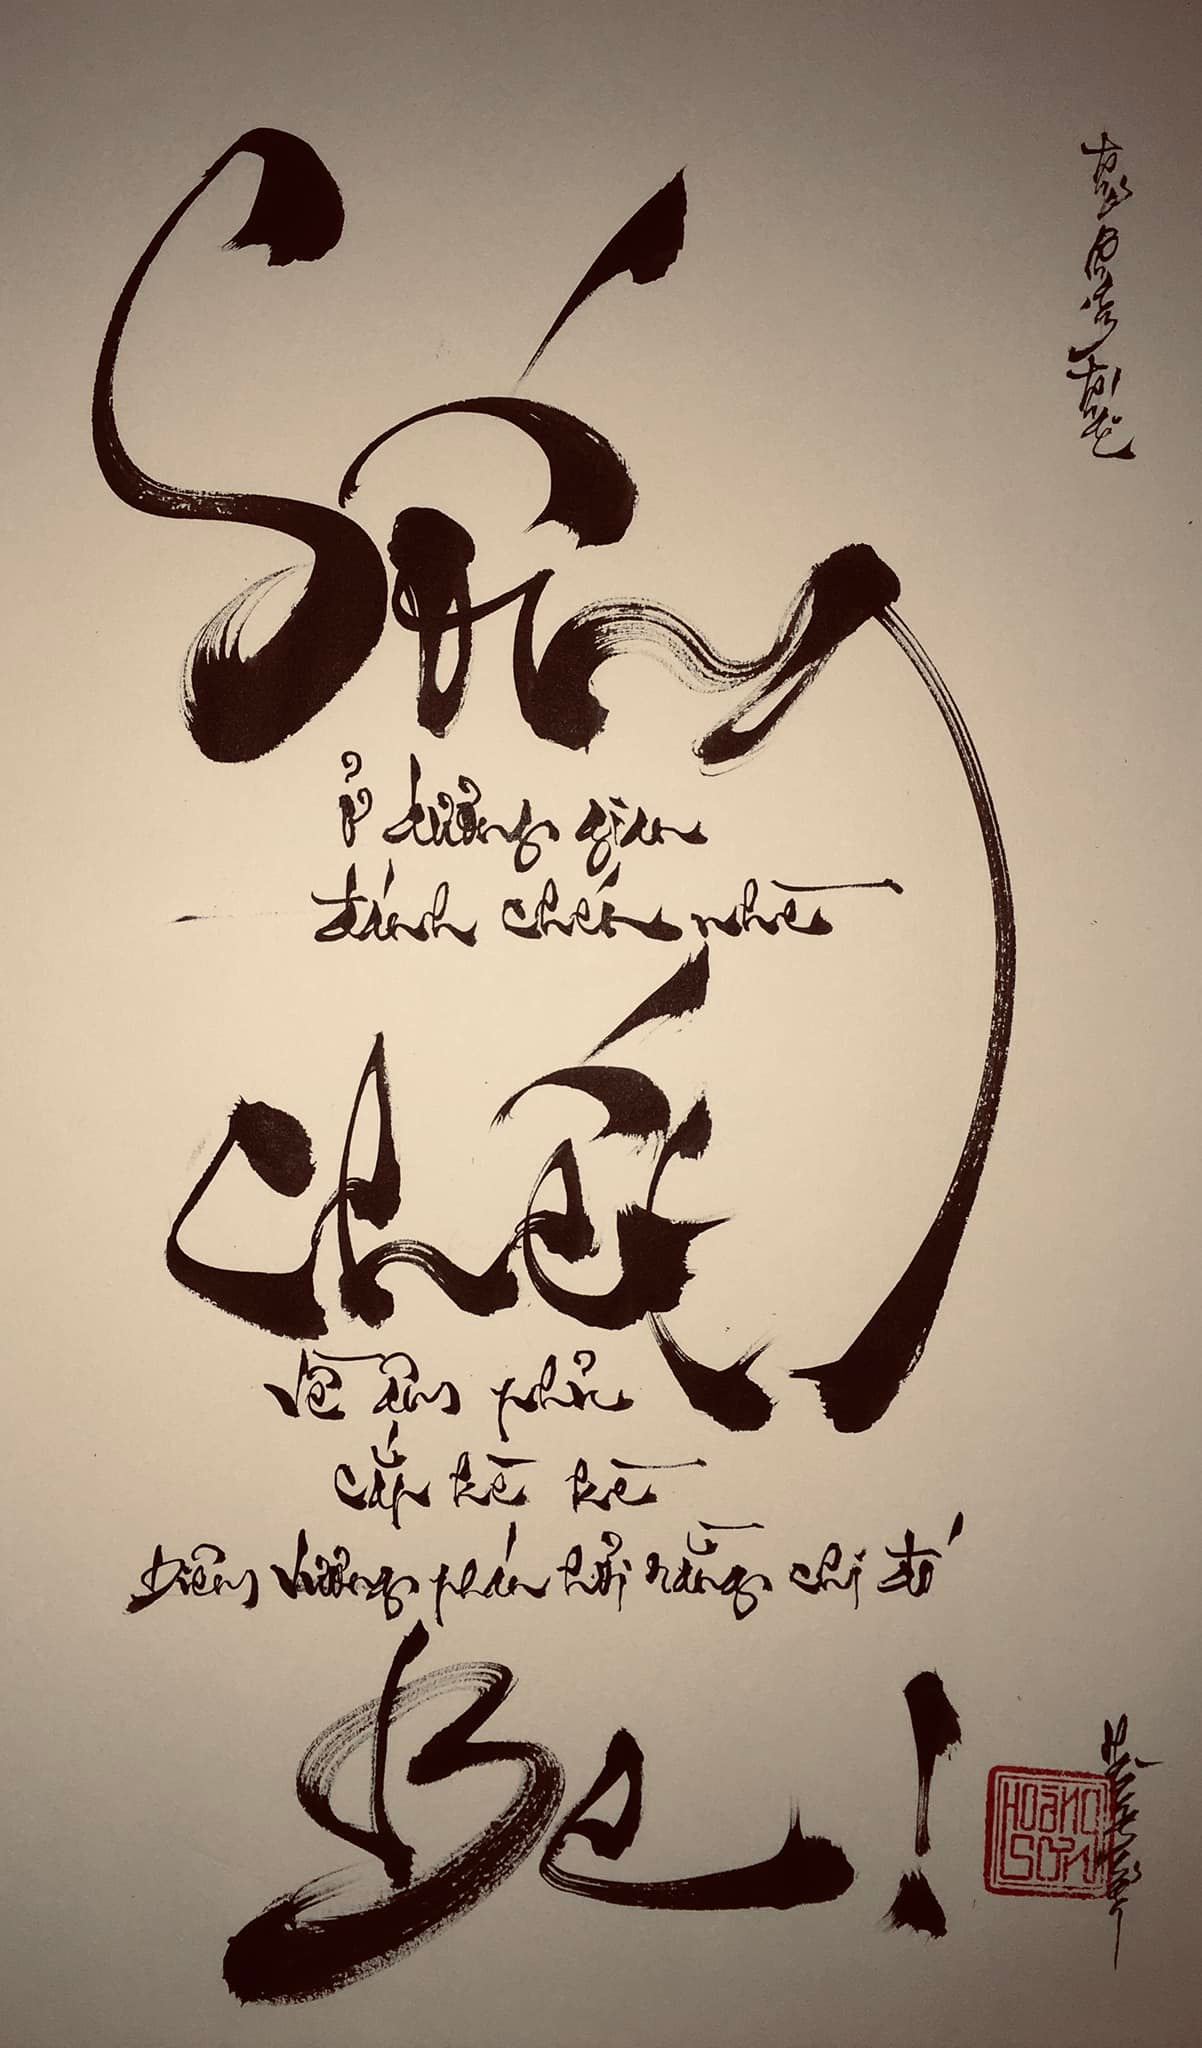 Sống
ở dương gian
đánh chén nhè
Chết
về âm phủ
cắp kè kè
Diêm Vương phán hỏi rằng chi đó
Be!
HOÀNG
SƠN